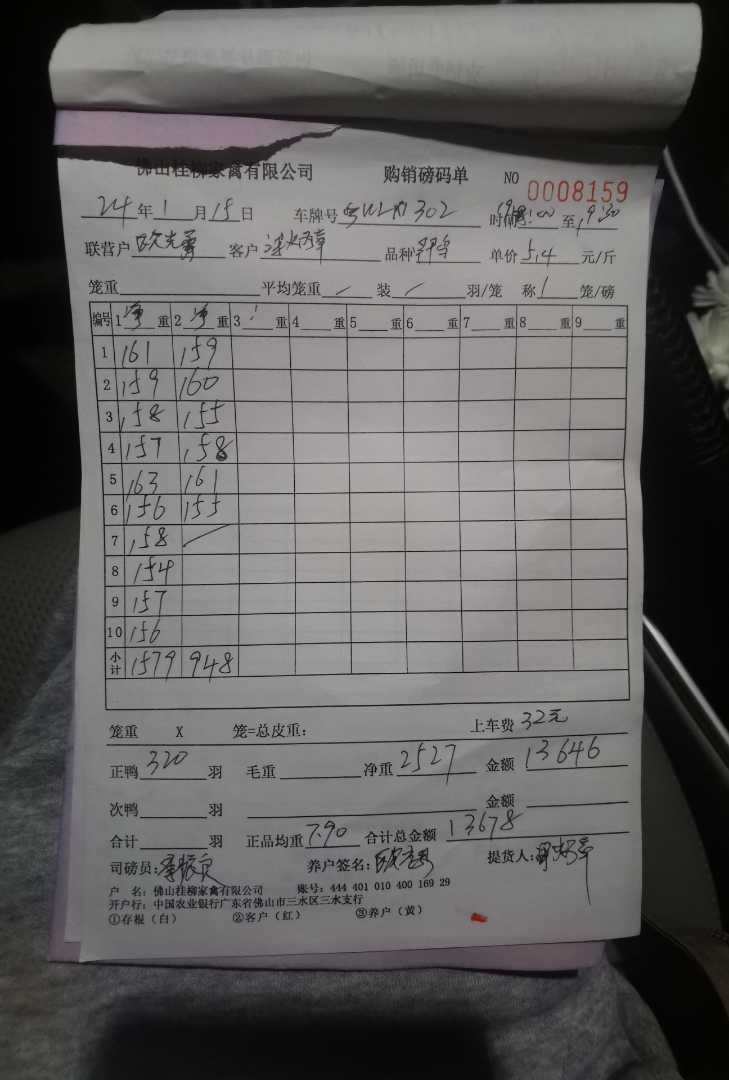 佛山桂柳家禽有限公司 购销磅码单 NO 0008159
24年1月15日 车牌号 302 时间 至 19:30
联营户 客户 品种 单价5.4元/斤
笼重 平均笼重 / 装 / 羽/笼 称 1 笼/磅
编号 1净重 2净重 3 重 4 重 5 重 6 重 7 重 8 重 9 重
1 161 159
2 159 160
3 158 155
4 157 158
5 163 161
6 156 155
7 158 /
8 154
9 157
10 156
小计 1579 948
笼重 X 笼=总皮重: 上车费 32元
正鸭 320 羽 毛重 净重 2527 金额 13646
次鸭 羽 金额
合计 羽 正品均重 7.90 合计总金额 13678
司磅员: 养户签名: 提货人:
户 名: 佛山桂柳家禽有限公司 账号: 444 401 010 400 169 29
开户行: 中国农业银行广东省佛山市三水区三水支行
①存根(白) ②客户(红) ③养户(黄)